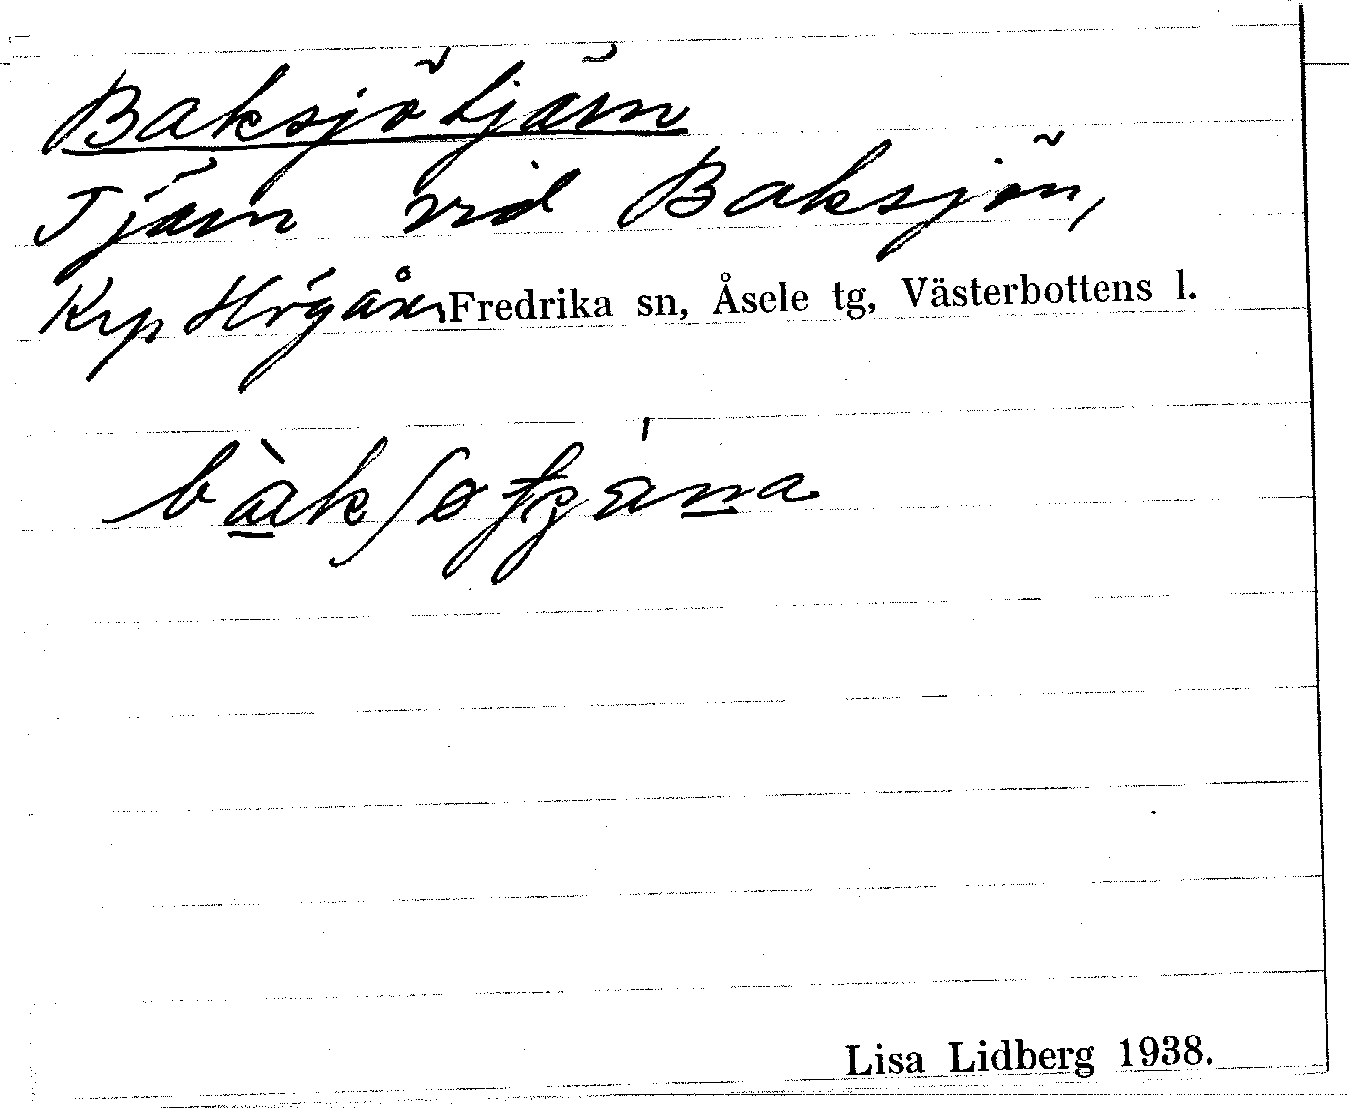 Baksjötjärn
Tjärn vid Baksjön,
Krp Högåsen Fredrika sn, Åsele tg, Västerbottens l.
Lisa Lidberg 1938.